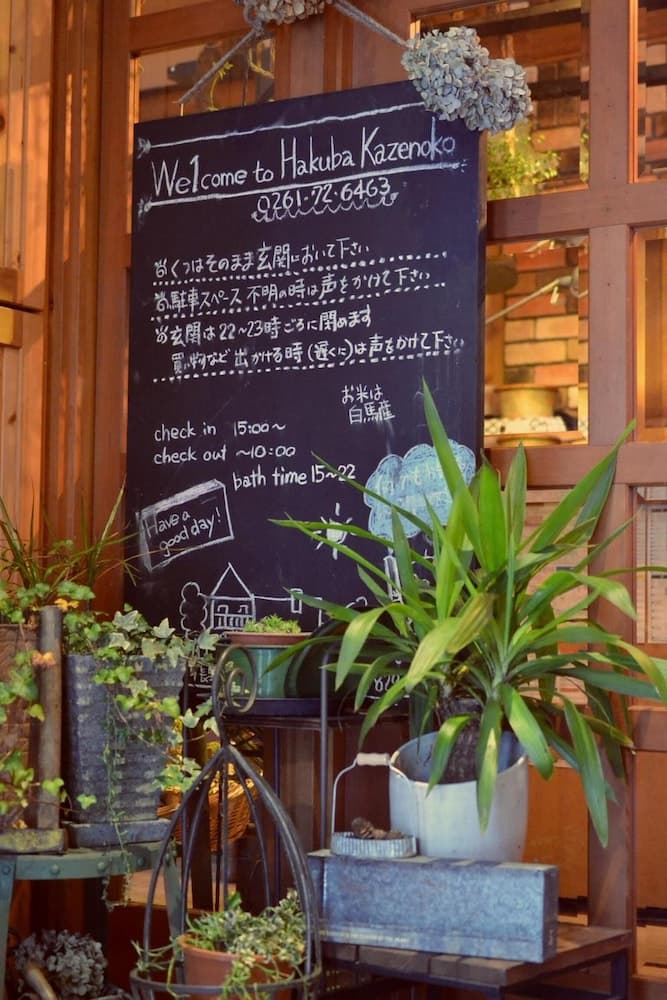 We1come to Hakuba Kazenoko
0261-72-6463
くつはそのまま玄関において下さい
駐車スペース不明の時は声をかけて下さい
玄関は22~23時ごろに閉めます
買い物など出かける時(遅くに)は声をかけて下さい
お米は
白馬産
check in 15:00~
check out ~10:00
bath time 15~22
Have a
good day!